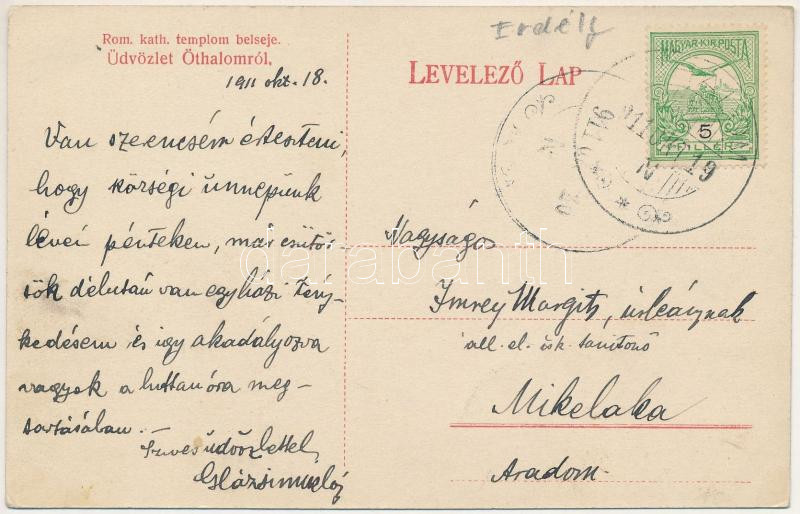 Erdély
Rom. kath. templom belseje.
Üdvözlet Öthalomról,
1911 okt. 18.
LEVELEZŐ LAP
MAGYAR·KIR·POSTA
5
FILLÉR
Van szerencsém értesíteni,
hogy községi ünnepünk
lévén pénteken, már csütör-
tök délután van egyházi tény-
kedésem és így akadályozva
vagyok a hittanóra meg-
tartásában. –
Szíves üdvözlettel,
Nagyságos
Imrey Margit, úrleánynak
áll. el. isk. tanítónő
Mikelaka
Aradom.
darabanth.com